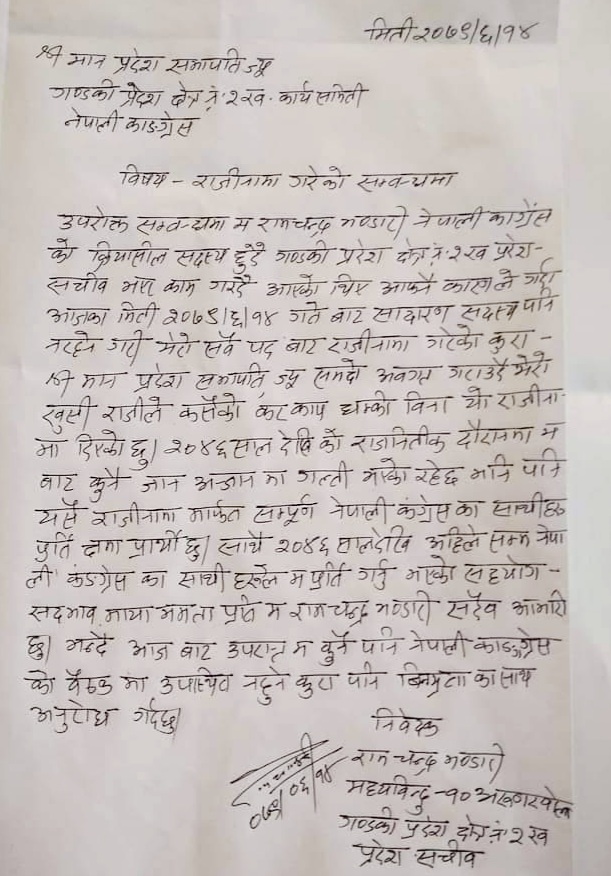 मिती २०७९/६/१४
श्री मान प्रदेश सभापति ज्यू
गण्डकी प्रदेश क्षेत्र नं २ ख. कार्य समिती
नेपाली काङग्रेस
विषय - राजीनामा गरेको सम्वन्धमा
उपरोक्त सम्वन्धमा म रामचन्द्र भण्डारी नेपाली काग्रेंस
को क्रियासील सदस्य हुदै गण्डकी प्रदेश क्षेत्र नं २ ख प्रदेश-
सचीव भए काम गरदै आएको थिए आफनै कारणले गर्दा
आजका मिती २०७९/६/१४ गते बाट सादारण सदस्य पनि
नरहने गरी मेरो सवै पद बाट राजीनामा गरेको कुरा -
श्री मान प्रदेश सभापति ज्यू समक्ष अवगत गराउदै मेरो
खुसी राजीले कसैको कर काप धम्की विना यो राजीना
मा दिएको छु। २०४६ साल देखि को राजनितीक दौरानमा म
बाट कुनै जान अन्जान मा गल्ती भएको रहेछ भने पनि
यसै राजीनामा मार्फत सम्पूर्ण नेपाली कंग्रेस का साथीहरु
प्रति क्षमा प्रार्थी छु। साथै २०४६ सालदेखि अहिले सम्म नेपा
ली कंङग्रेस का साथी हरुले म प्रति गर्नु भएको सहयोग -
सदभाव माया ममता प्रति म राम चन्द्र भण्डारी सदैव आभारी
छु। भन्दै आज बाट उपरान्त म कुनै पनि नेपाली काङग्रेस
को वैठक मा उपस्थित नहुने कुरा पनि बिनम्रता का साथ
अनुरोध गर्दछु।
निवेदक
राम चन्द्र भण्डारी
०७९/०६/१४
मध्यविन्दु -१०
गण्डकी प्रदेश क्षेत्र नं २ ख
प्रदेश सचीव